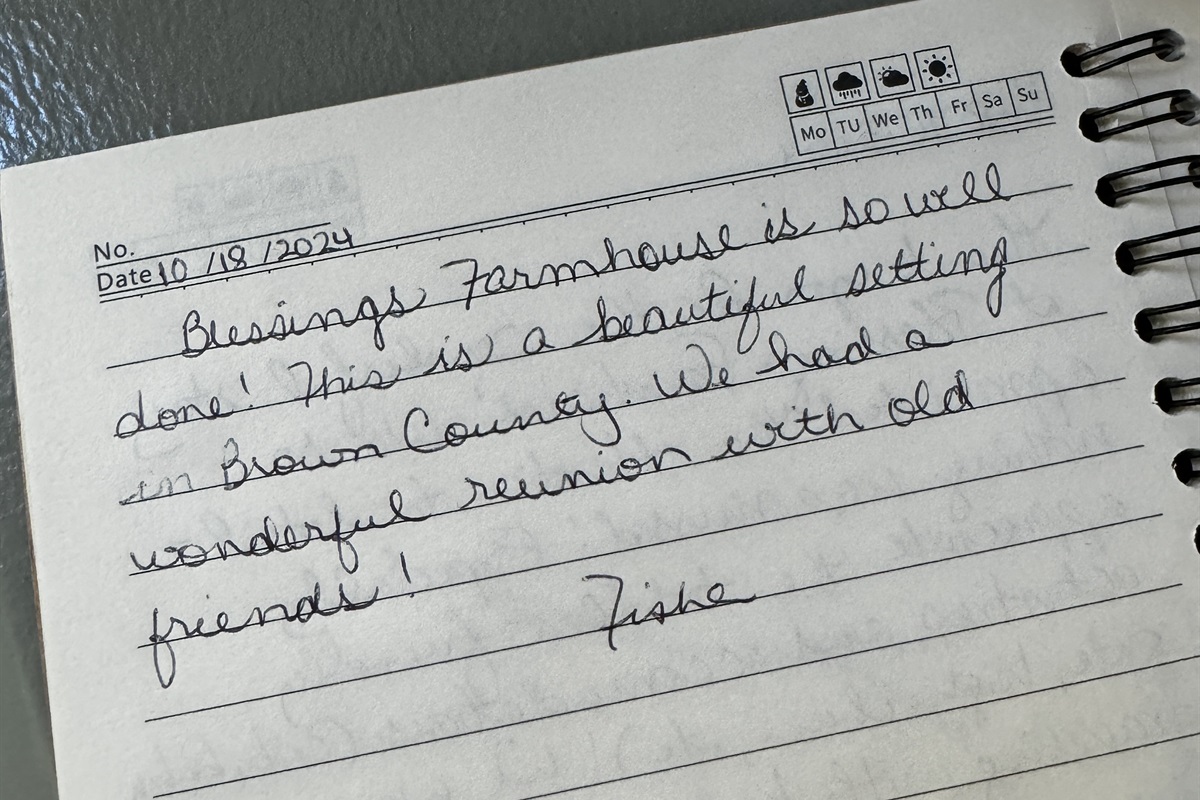 Mo TU We Th Fr Sa Su
No.
Date 10 /18 /2024
Blessings Farmhouse is so well
done! This is a beautiful setting
in Brown County. We had a
wonderful reunion with old
friends!